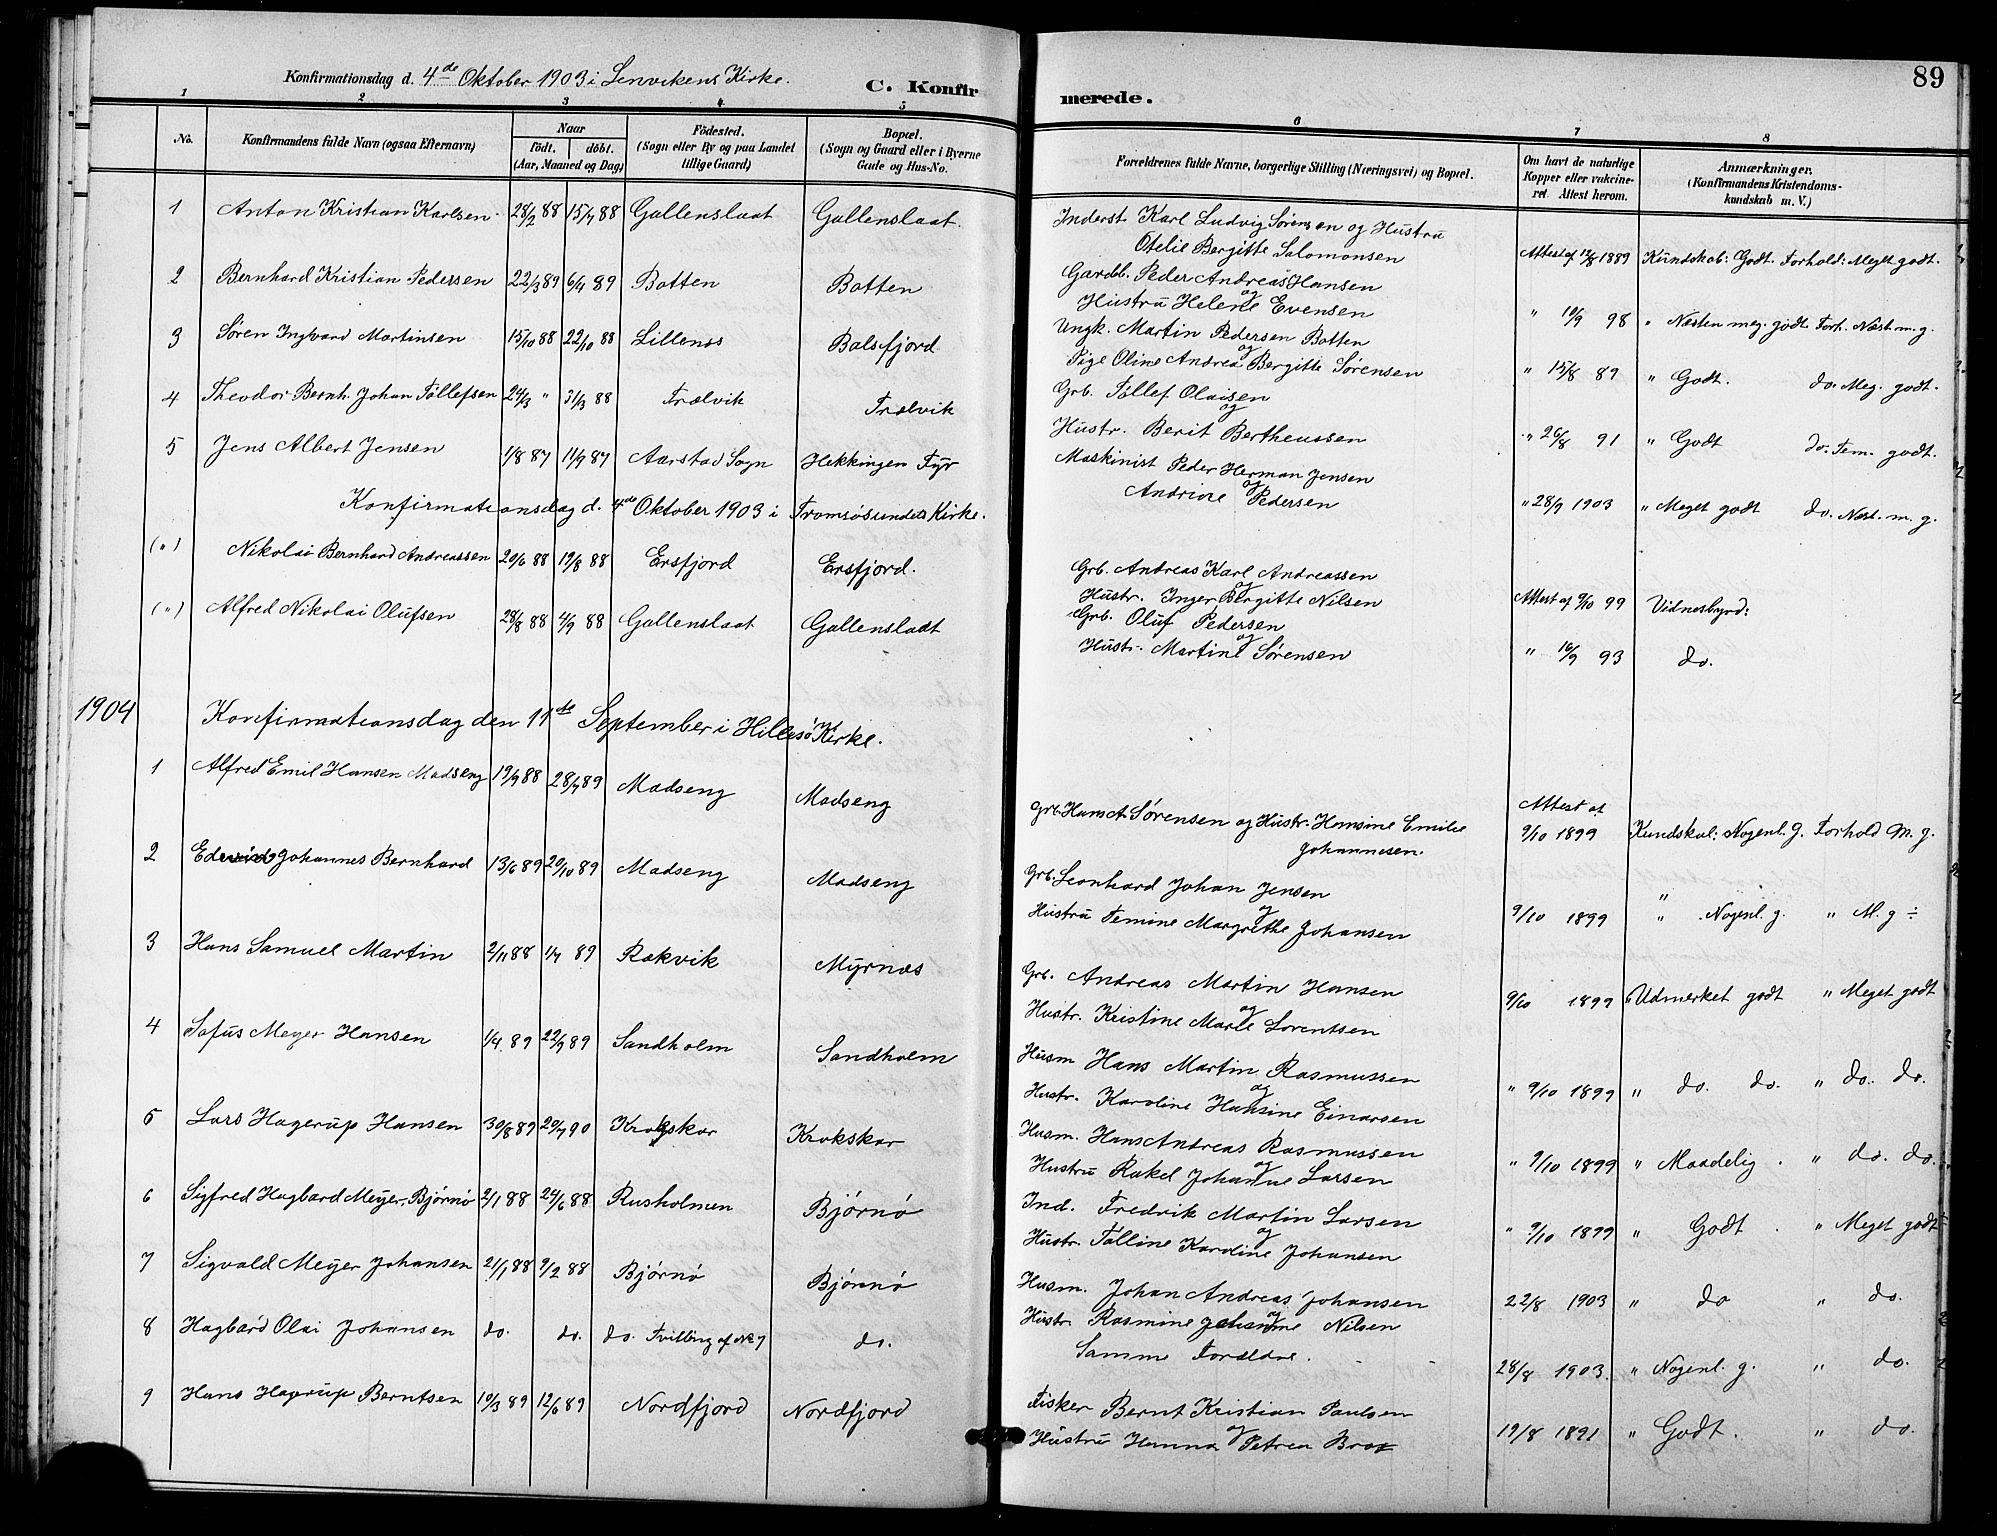 Konfirmationsdag d. 4de Oktober 1903 i Lenvikens Kirke.
C. Konfirmerede.
89
1 2 3 4 5 6 7 8
No.
Konfirmandens fulde Navn (ogsaa Efternavn)
Naar
födt. döbt.
(Aar, Maaned og Dag)
Födested.
(Sogn eller By og paa Landet
tillige Gaard)
Bopæl.
(Sogn og Gaard eller i Byerne
Gade og Hus-No.
Forældrenes fulde Navne, borgerlige Stilling (Næringsvei) og Bopæl.
Om havt de naturlige
Kopper eller vakcine-
ret. Attest herom.
Anmærkninger.
(Konfirmandens Kristendoms-
kundskab m. V.)
1 Anton Kristian Karlsen 28/2 88 15/7 88 Gallenslaat Gallenslaat.
Inderst Karl Ludvig Sørensen og Hustru
Otelie Bergitte Salomonsen Attest af 12/8 1889 Kundskab: Godt. Forhold: Meget godt.
2 Bernhard Kristian Pedersen 22/3 89 6/4 89 Botten Botten
Gardb. Peder Andreas Hansen
og
Hustru Helene Evensen " 10/9 98 " Næsten meg. godt Forh. Næst m. g.
3 Søren Ingvard Martinsen 15/10 88 22/10 88 Lillenes Balsfjord
Ungk. Martin Pedersen Botten
og
Pige Oline Andrea Bergitte Sørensen " 15/8 89 " Godt. do. Meg. godt.
4 Theodor Bernh. Johan Tøllefsen 24/3 " 31/3 88 Trælvik Trælvik
Grb. Tøllef Olaisen
og
Hustr. Berit Bertheussen " 26/8 91 " Godt do. Tem. godt.
5 Jens Albert Jensen 1/8 87 11/9 87 Aarstad Sogn Hekkingen Fyr
Maskinist Peder Herman Jensen
og
Andrine Pedersen " 28/9 1903 " Meget godt do. Næst. m. g.
Konfirmationsdag d. 4de Oktober 1903 i Tromsøsundets Kirke.
(") Nikolai Bernhard Andreassen 20/6 88 19/8 88 Ersfjord Ersfjord.
Grb. Andreas Karl Andreassen
og
Hustr. Inger Bergitte Nilsen Attest af 9/10 99 Vidnesbyrd:
(") Alfred Nikolai Olufsen 28/8 88 4/9 88 Gallenslaat Gallensladt
Grb. Oluf Pedersen
og
Hustr. Martine Sørensen " 10/9 93 do.
1904 Konfirmationsdag den 11te September i Hillesø Kirke.
1 Alfred Emil Hansen Madseng 19/9 88 28/7 89 Madseng Madseng
Grb. Hans Sørensen og Hustr. Hansine Emilie
Johannesen. Attest af
9/10 1899 Kundskab: Nogenl. g. Forhold M. g.
2 Johannes Bernhard 13/6 89 20/10 89 Madseng Madseng
Grb. Leonhard Johan Jensen
og
Hustru Temine Margrethe Johansen 9/10 1899 " Nogenl. g. " M. g ÷
3 Hans Samuel Martin 2/11 88 1/7 89 Rakvik Myrnæs
Grb. Andreas Martin Hansen
og
Hustr. Kristine Marie Lorentsen 9/10 1899 Udmerket godt " Meget godt
4 Sofus Meyer Hansen 1/4 89 22/9 89 Sandholm Sandholm
Husm Hans Martin Rasmussen
og
Hustr. Karoline Hansine Einarsen " 9/10 1899 " do. do. " do. do.
5 Lars Hagerup Hansen 30/8 89 20/7 90 Krokskar Krokskar
Husm. Hans Andreas Rasmussen
og
Hustru Rakel Johanne Larsen " 9/10 1899 " Maadelig. " do. do.
6 Sigfred Hagbard Meyer, Bjørnø 2/1 88 24/6 88 Rusholmen Bjørnø
Ind. Fredrik Martin Larsen
og
Hustr. Talline Karoline Johansen " 9/10 1899 " Godt. " Meget godt
7 Sigvald Meyer Johansen 21/1 88 9/2 88 Bjørnø Bjørnø
Husm. Johan Andreas Johansen
og
Hustr. Rasmine Johanne Nilsen 22/8 1903 " do " do.
8 Hagbard Olai Johansen do. do. do. Tvilling af No 7 do.
Samme Forældre. 28/8 1903. " Nogenl. g. " do.
9 Hans Hagerup Berntsen 19/3 89 12/6 89 Nordfjord Nordfjord
Fisker Bernt Kristian Paulsen
og
Hustru Hanna Petrea Brox 19/8 1891 " Godt. " do.